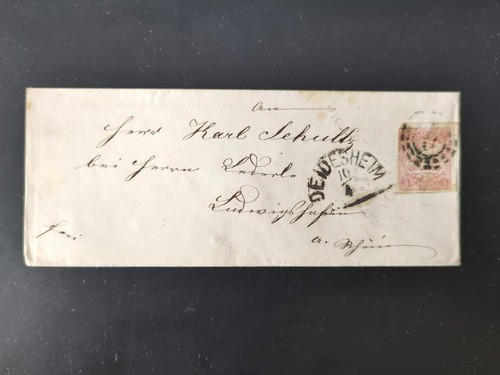 An
Herrn Karl Schultz
bei Herrn Lederle
Ludwigshafen
a. Rhein
frei
DEIDESHEIM
10
4